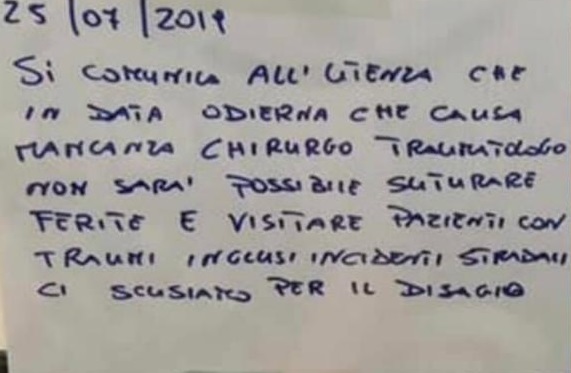 25/07/2019
Si COMUNICA ALL'UTENZA CHE
IN DATA ODIERNA CHE CAUSA
MANCANZA CHIRURGO TRAUMATOLOGO
NON SARA' POSSIBILE SUTURARE
FERITE E VISITARE PAZIENTI CON
TRAUMI INCLUSI INCIDENTI STRADALI
CI SCUSIAMO PER IL DISAGIO